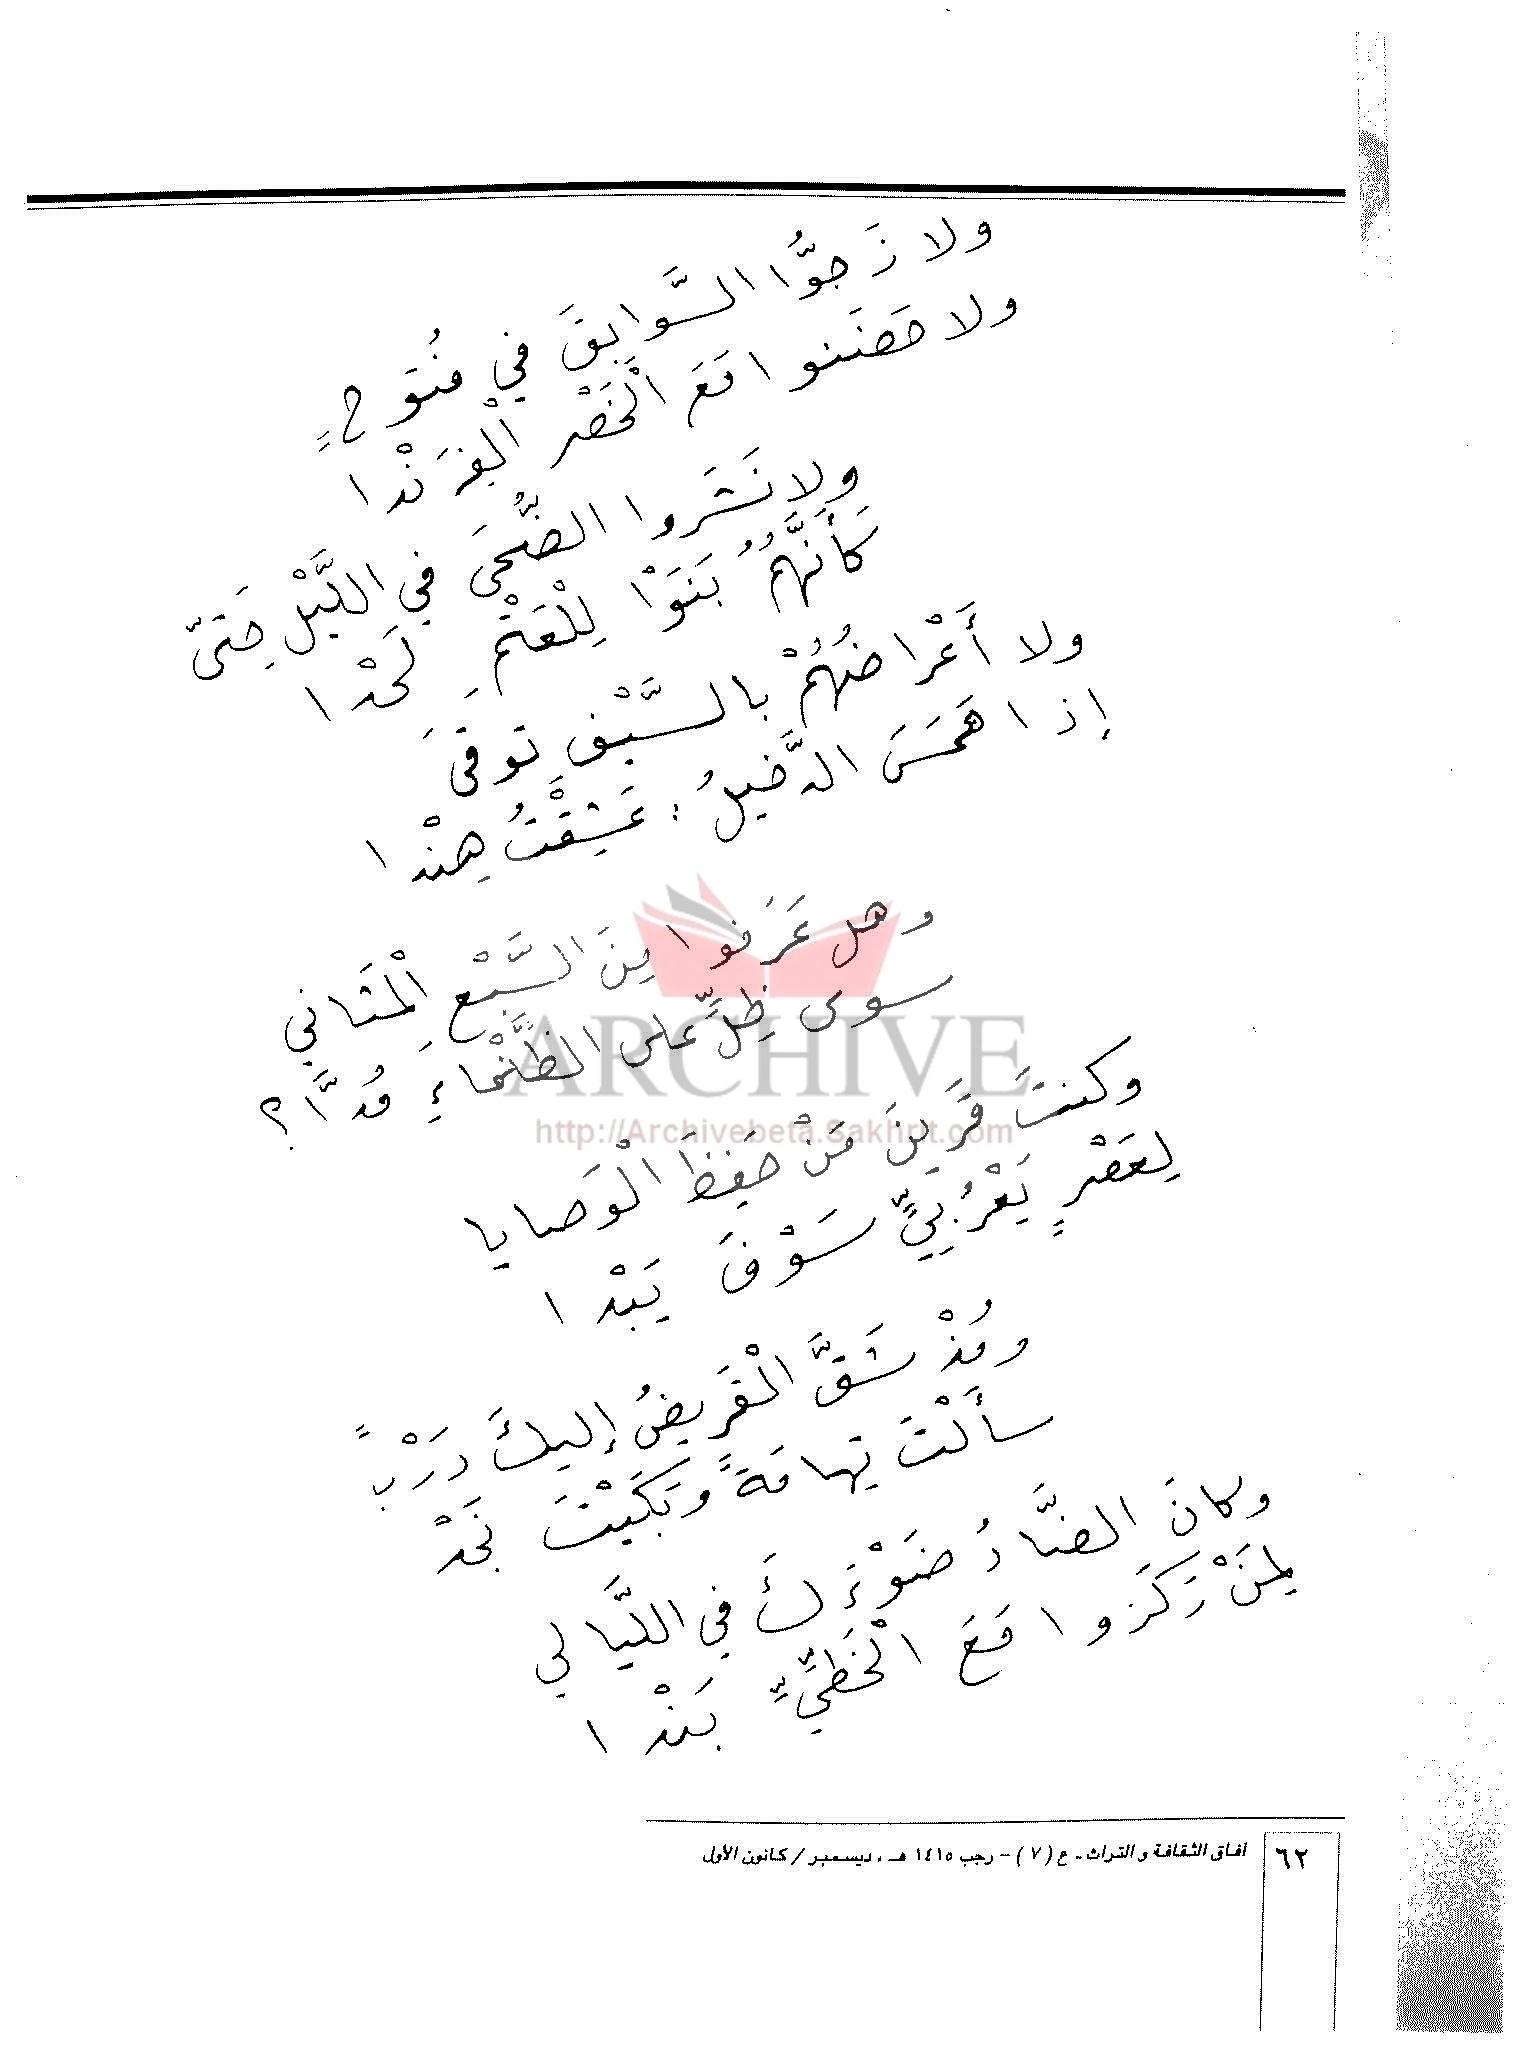 ولا زَجُّوا السَّوابِقَ في فُتوحٍ
ولا حَضَنوا مَعَ الْخَصْرِ الْفِرَنْدا
ولا نَشَروا الضُّحَى في اللَّيْلِ حَتّى
كَأَنَّهُمُ بَنَوْا لِلْعَتْمِ لَحْدا
ولا أَعْراضُهُمْ بالسَّيْفِ توقَى
إذا هَمَسَ الدَّخيلُ : عَشِقْتُ هِنْدا
وهل عَرَفوا مِنَ السَّبْعِ الْمَثاني
سوى ظِلٍّ على الظَّلْماءِ مُدَّا ؟
وكنتَ قَرينَ مَنْ حَفِظَ الْوَصايا
لِعَصْرٍ يَعْرُبِيٍّ سَوْفَ يَبْدا
ومُذْ شَقَّ الْقَريضُ إليكَ دَرْباً
سأَلْتَ تِهامَةً وَبَكَيْتَ نَجْد
وكانَ الضَّادُ ضَوْءَكَ في اللَّيالي
لِمَنْ رَكَزوا مَعَ الْخَطِّيِّ بَنْدا
ARCHIVE
http://Archivebeta.Sakhrit.com
٦٢ آفاق الثقافة والتراث - ع (٧) - رجب ١٤١٥ هـ ، ديسمبر / كانون الأول